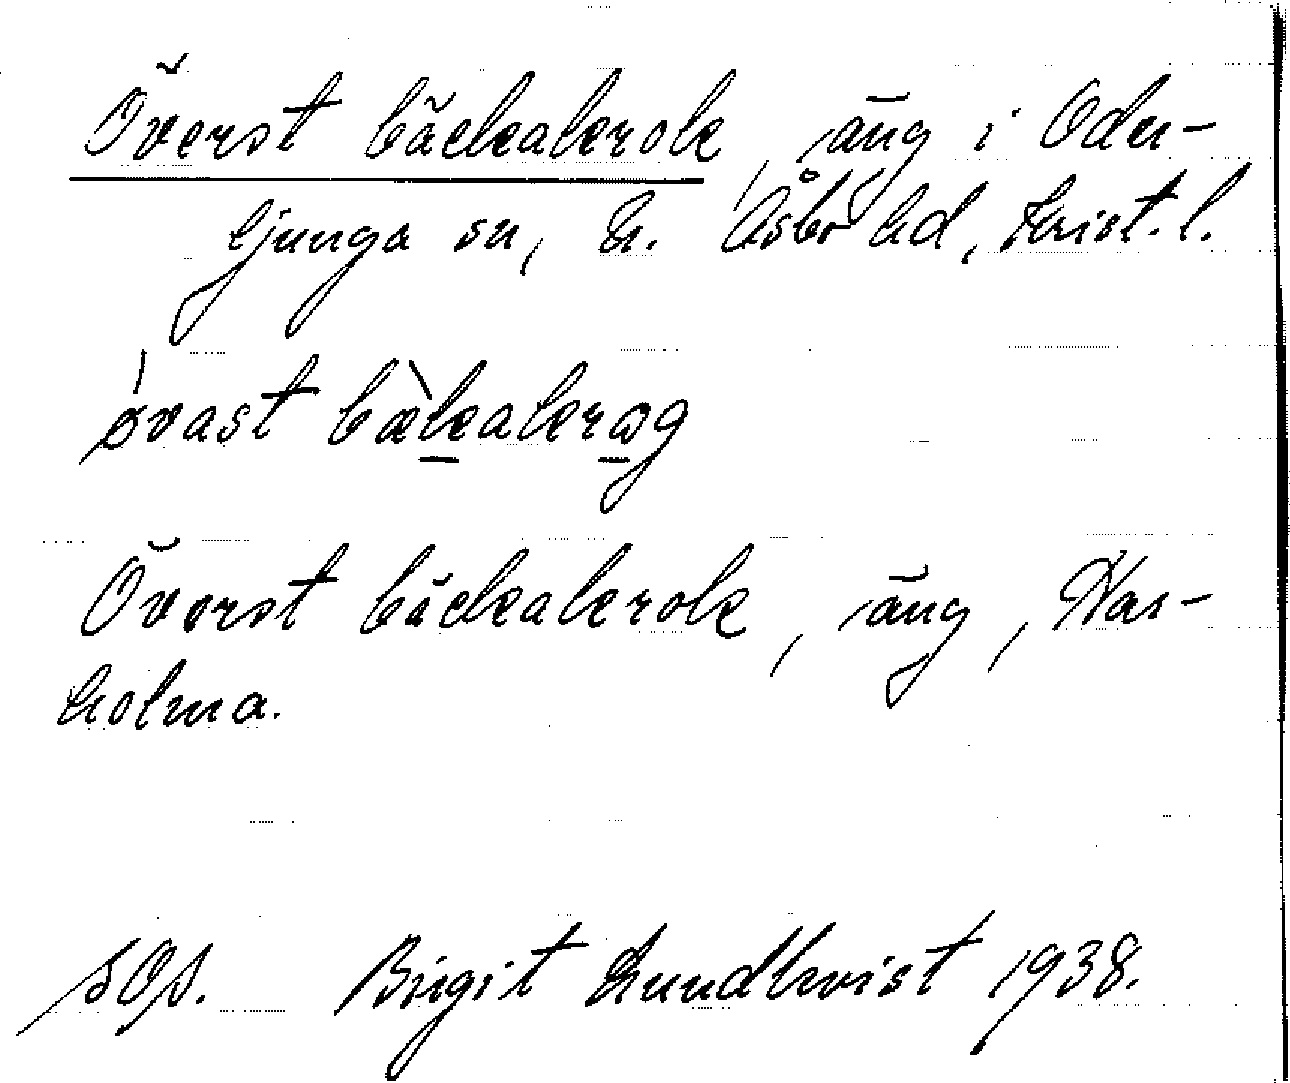 Överst bäckakrok, äng i Oder-
ljunga sn, N. Åsbo hd, Krist. l.
øvast bækakrɷg
Överst bäckakrok, äng, Nas-
holma.
SOA. Birgit Lundkvist 1938.